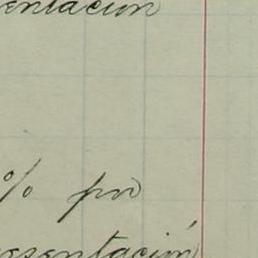 entacion
% por
esentación